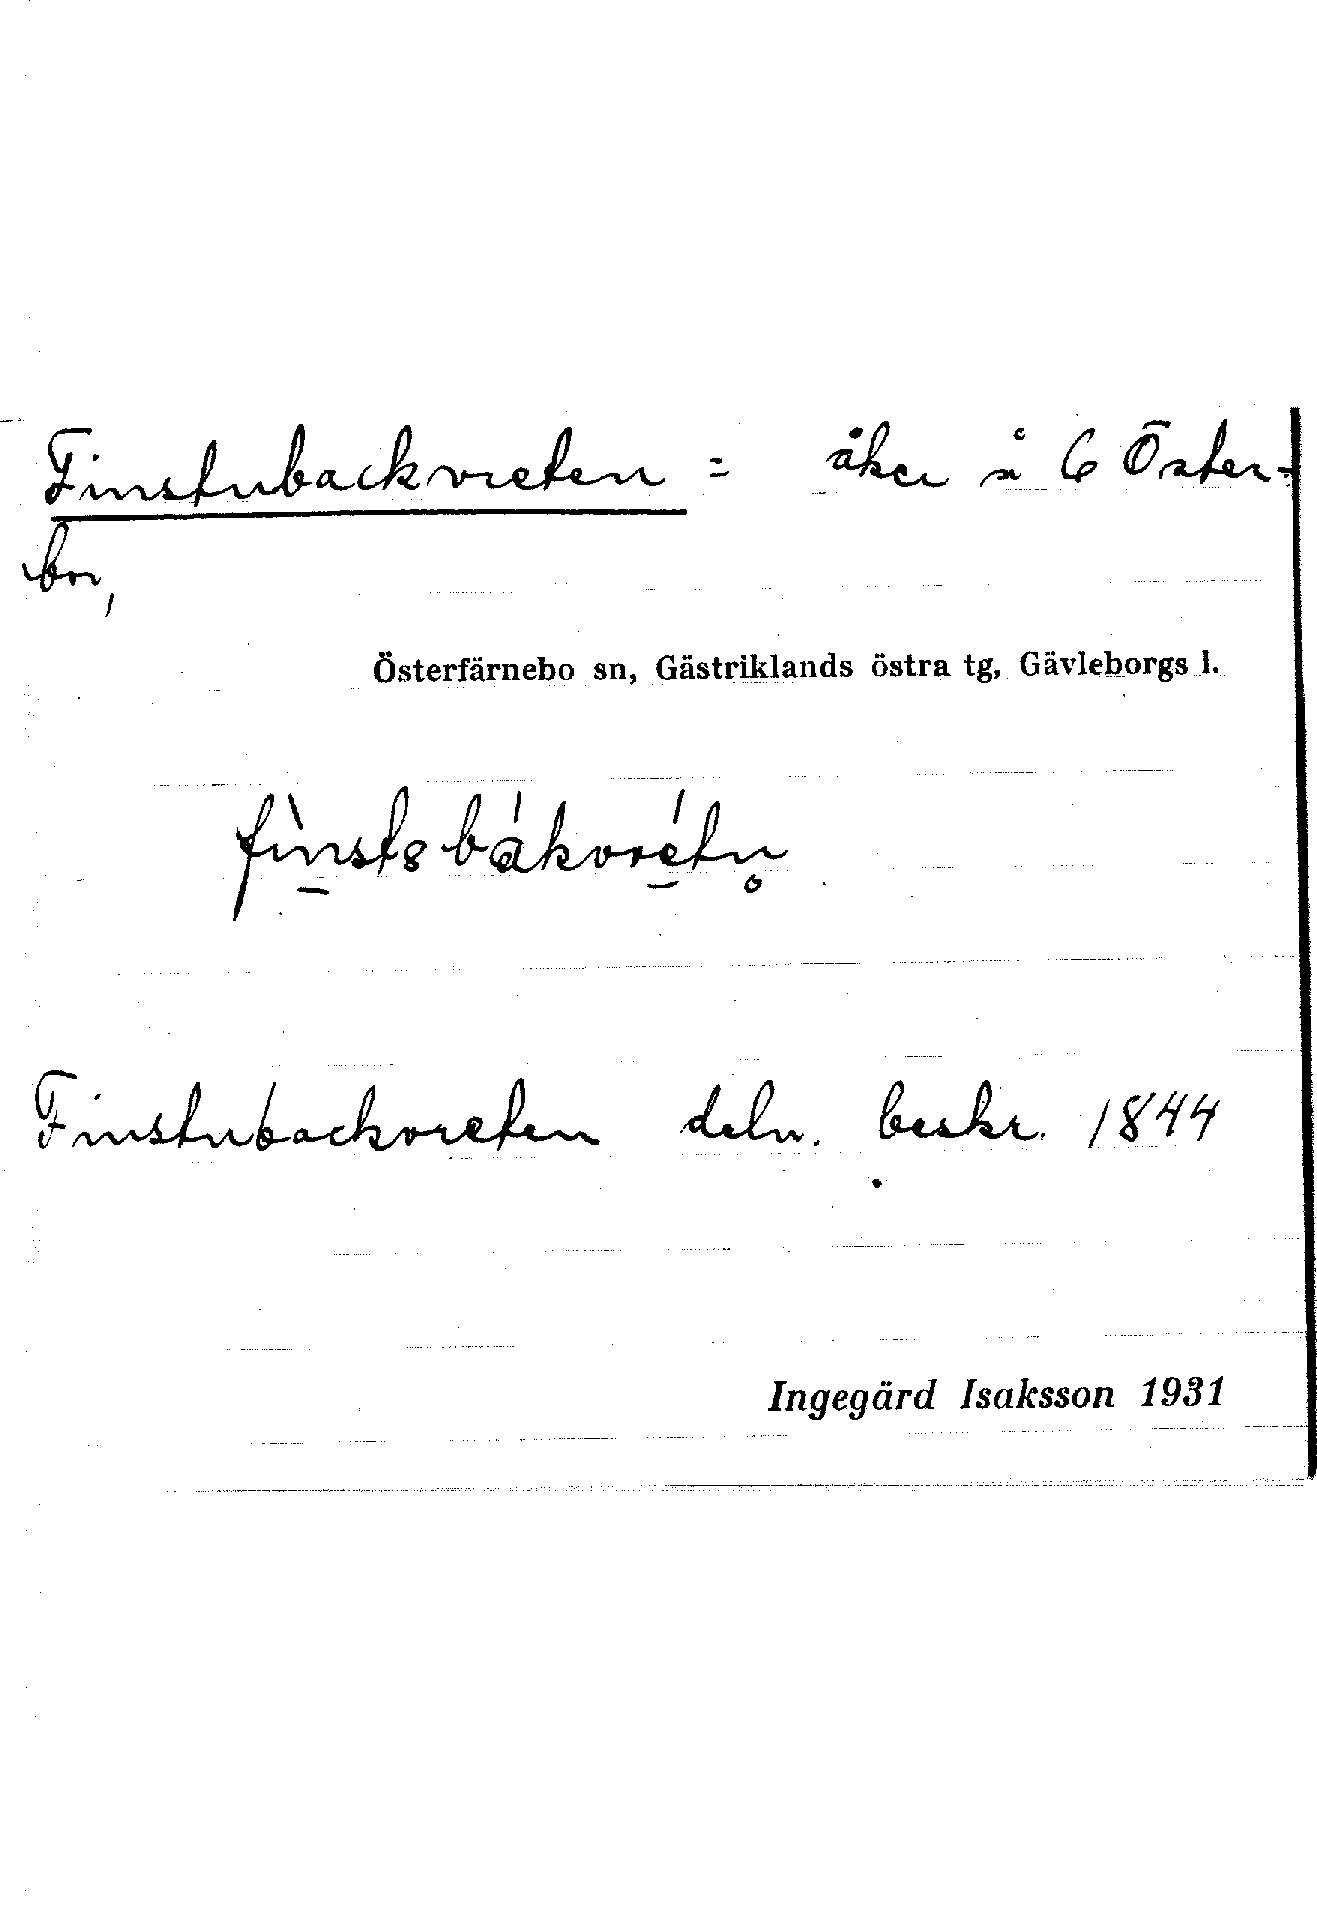 Finstubackvreten = åker å 6 Öster-
bor,
Österfärnebo sn, Gästriklands östra tg, Gävleborgs l.
Finstubackvreten deln. beskr. 1844
Ingegärd Isaksson 1931